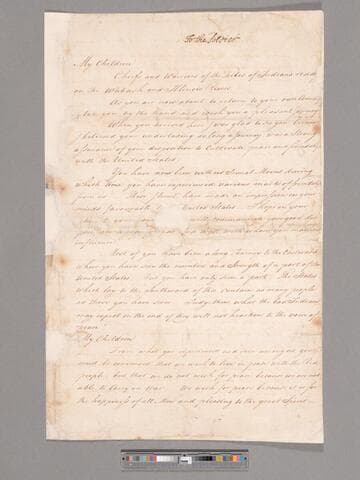 To the Indians
My Children
Chiefs and Warriors of the Tribes of Indians resid
on the Wabash and Illinois Rivers
As you are now about to return to your own lands
I take you by the hand and wish you a pleasant journey
When you arrived here I was glad to see you because
I believed your undertaking so long a journey was a strong
assurance of your disposition to Cultivate peace and friendship
with the United States
You have now been with us Several Moons during
which time you have experienced various marks of friendship
from us They must have made an impression on your
minds favourable United States I hope on your
to your own will communicate your good
Most of you have been a long Journey to the Eastward
where you have seen the numbers and strength of a part of the
United States but you have only seen a part The States
which lay to the southward of this contain as many people
as those you have seen Judge then what the bad Indians
may expect in the end if they will not hearken to the voice of
peace
My Children
From what you experienced and seen amongst you
must be convinced that we wish to live in peace with the Red
people but that we do not wish for peace because we are not
able to Carry on War We wish for peace because it is for
the happiness of all Men and pleasing to the great Spirit